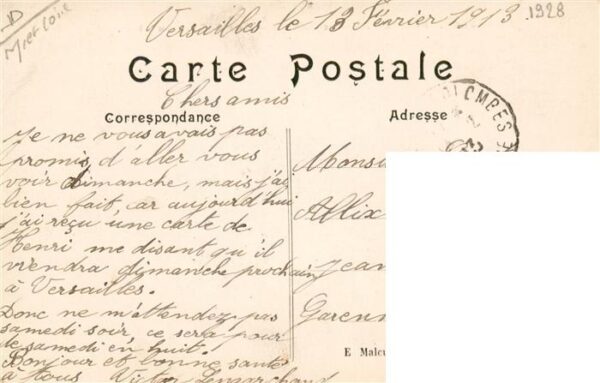 1D
M et Loire
1928
Versailles le 13 Février 1913
Carte Postale
Chers amis
Correspondance
Adresse
Je ne vous avais pas
promis d'aller vous
voir dimanche, mais j'ai
bien fait car aujourd'hui
j'ai reçu une carte de
Henri me disant qu'il
viendra dimanche prochain
à Versailles.
Donc ne m'attendez pas
samedi soir, ce sera pour
le samedi en huit.
Bonjour et bonne santé
à tous Victor Lemarchand
Monsi
Allix
Jean
Garenn
E Malcu